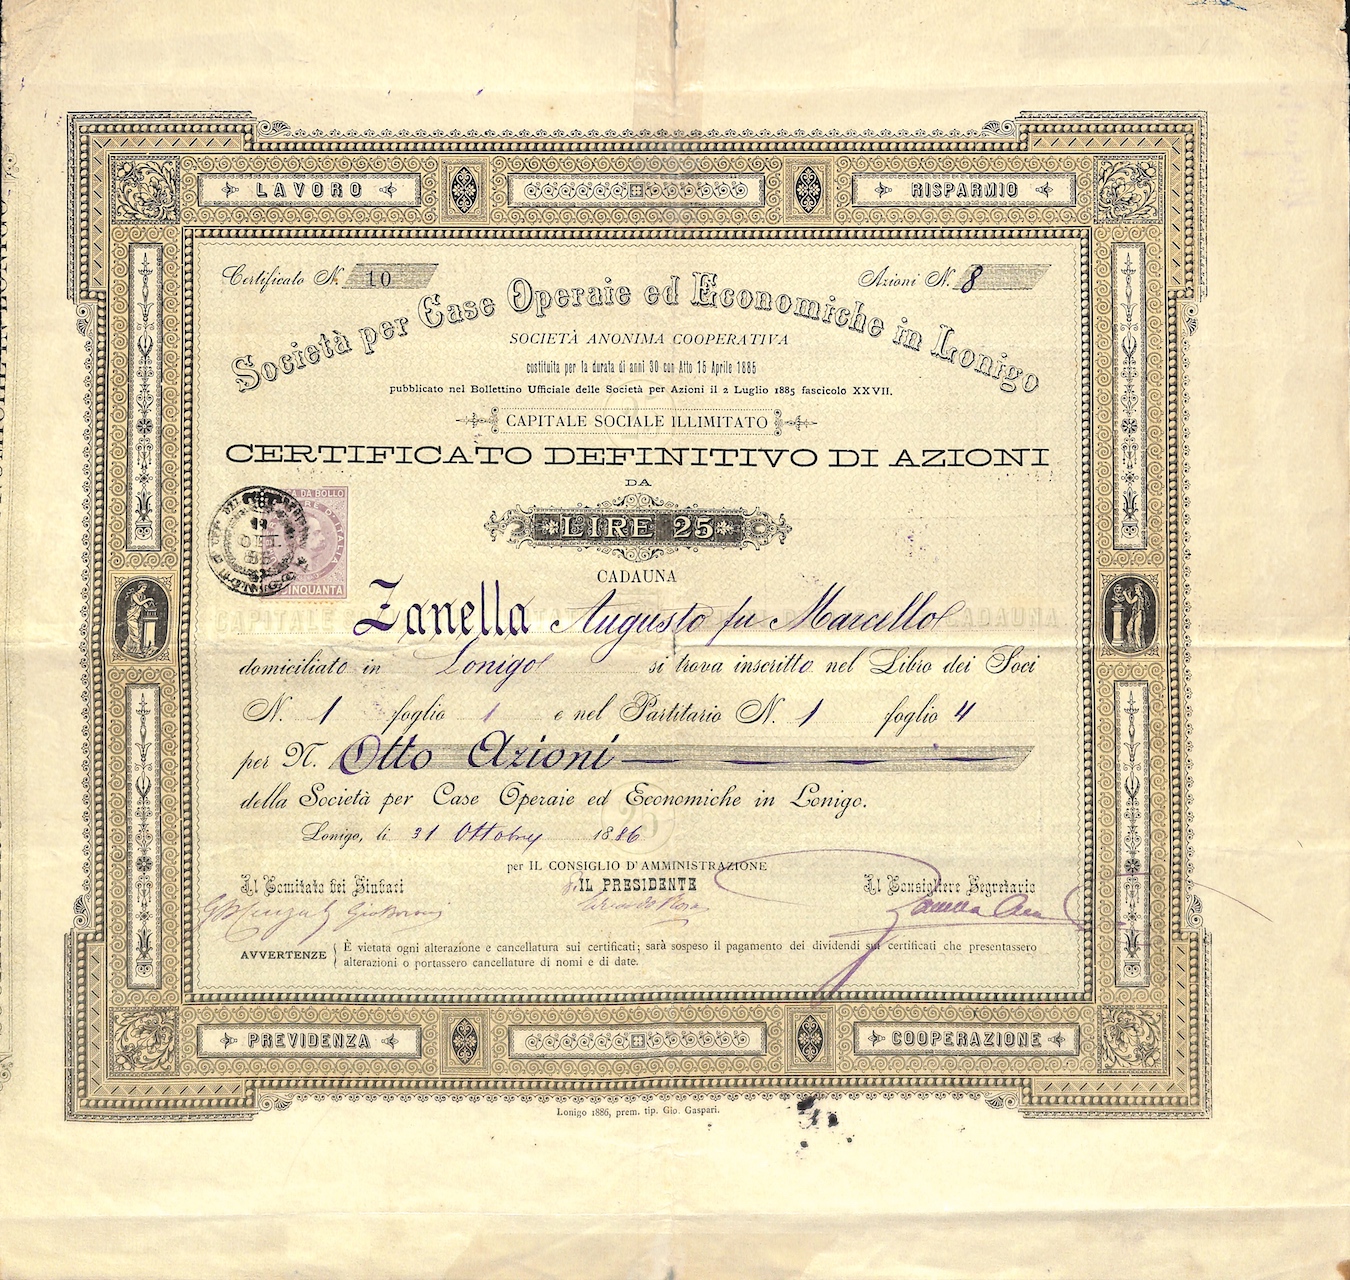 LAVORO
RISPARMIO
Certificato N. 10
Azioni N. 8
Società per Case Operaie ed Economiche in Lonigo
SOCIETÀ ANONIMA COOPERATIVA
costituita per la durata di anni 30 con Atto 15 Aprile 1885
pubblicato nel Bollettino Ufficiale delle Società per Azioni il 2 Luglio 1885 fascicolo XXVII.
CAPITALE SOCIALE ILLIMITATO
CERTIFICATO DEFINITIVO DI AZIONI
DA
LIRE 25
CADAUNA
DA BOLLO
CINQUANTA
Zanella Augusto fu Marcello
domiciliato in Lonigo si trova inscritto nel Libro dei Soci
N. 1 foglio 1 e nel Partitario N. 1 foglio 4
per N. Otto Azioni
della Società per Case Operaie ed Economiche in Lonigo.
Lonigo, li 31 Ottobre 1886
per IL CONSIGLIO D'AMMINISTRAZIONE
Il Comitato dei Sindaci
IL PRESIDENTE
Il Consigliere Segretario
AVVERTENZE { È vietata ogni alterazione e cancellatura sui certificati; sarà sospeso il pagamento dei dividendi sui certificati che presentassero
alterazioni o portassero cancellature di nomi e di date.
PREVIDENZA
COOPERAZIONE
Lonigo 1886, prem. tip. Gio. Gaspari.